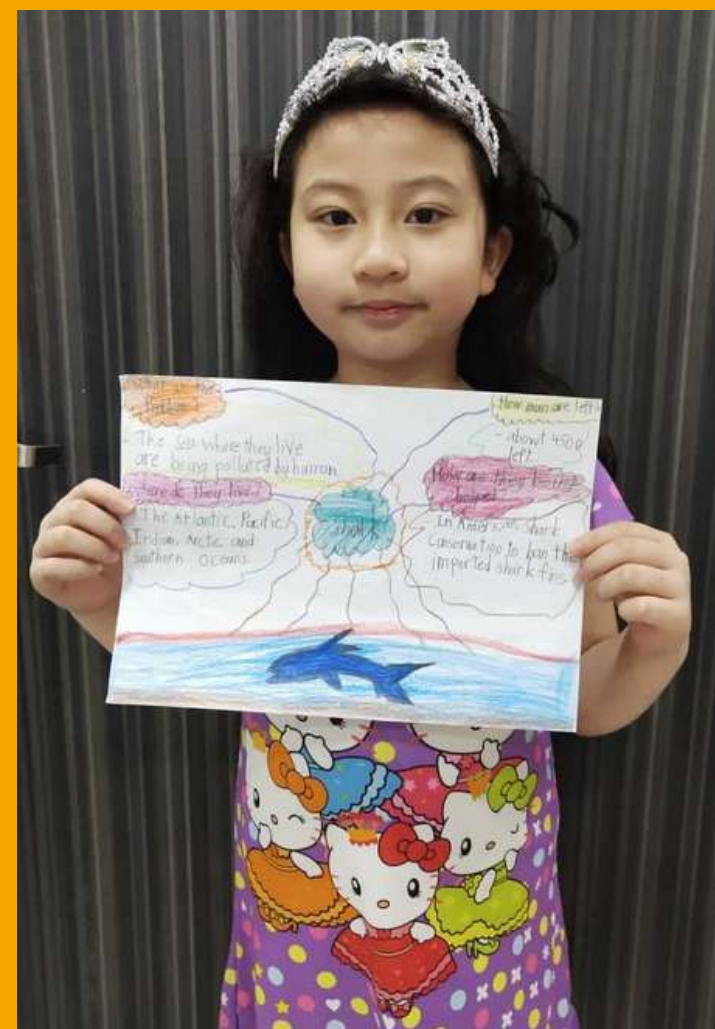 the
Problem
- The Sea where they live
are being polluted by human
Where do They live?
The Atlantic, Pacific,
Indian, Arctic and
Southern Oceans
shark
How man are left
- about 450
left
How are they being
helped
In American shark
Conservation to ban the
imported shark fins